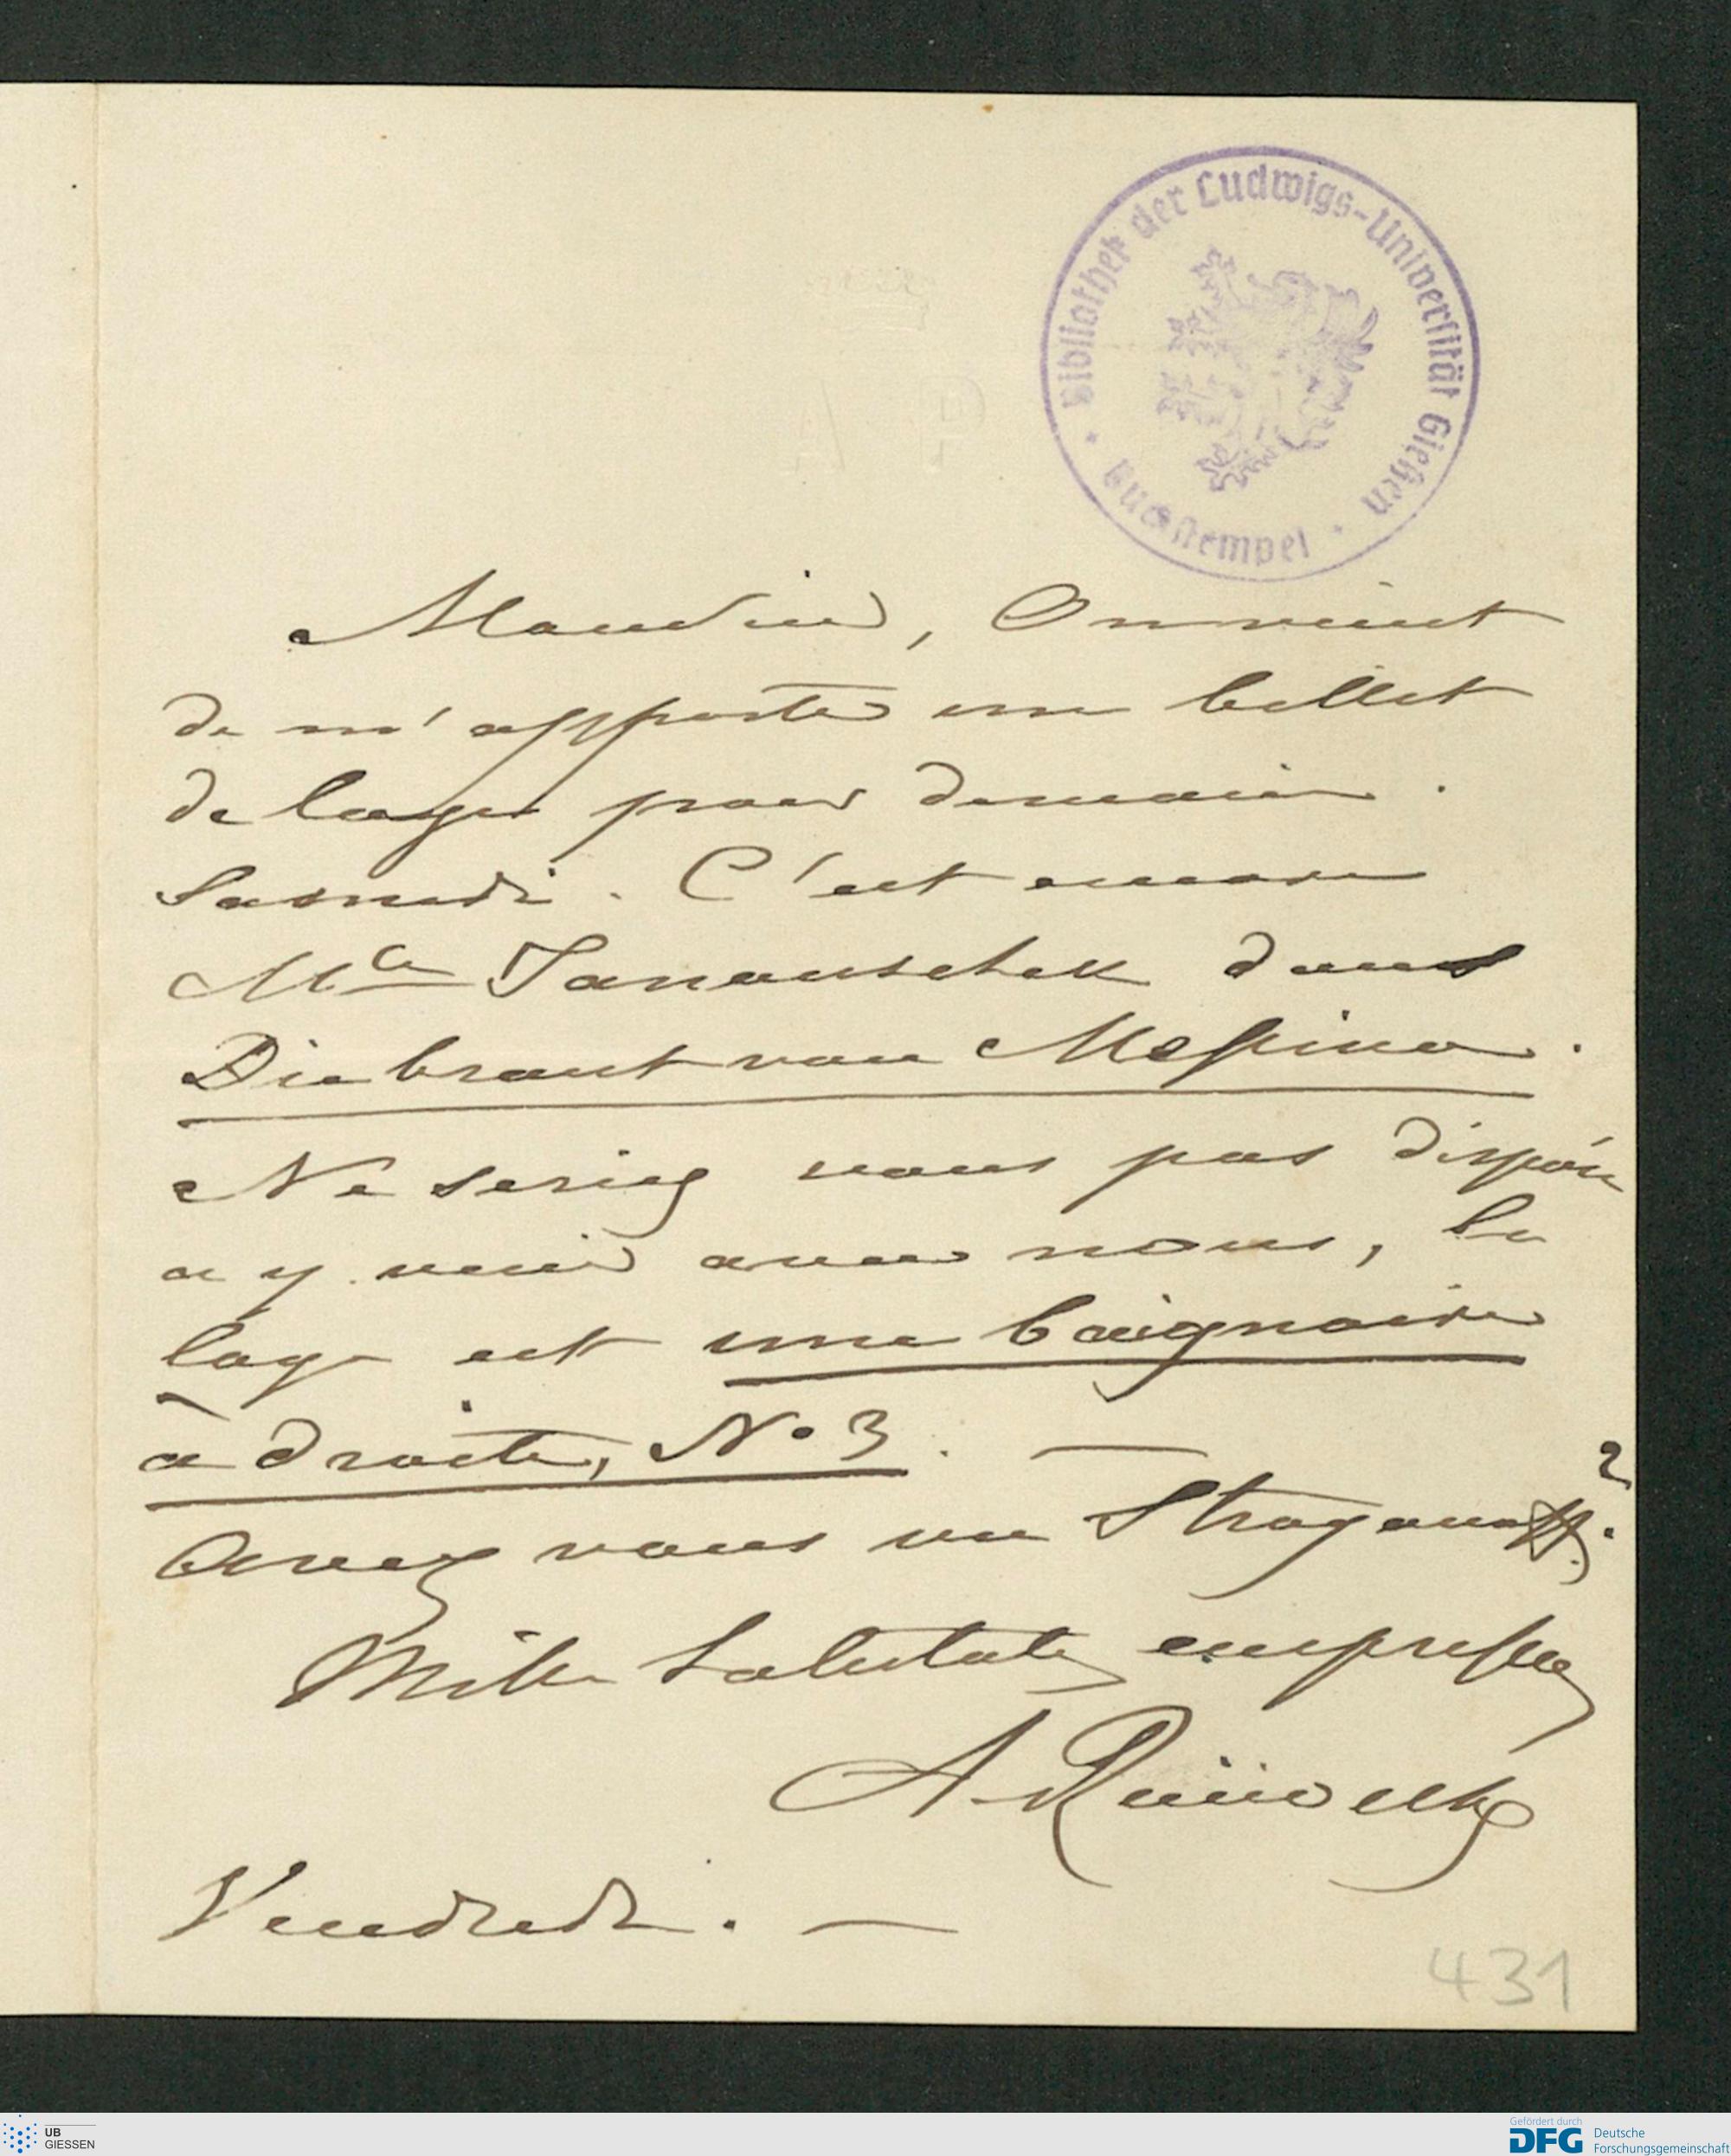 Bibliothek der Ludwigs-Universität Gießen
Buchstempel
Monsieur, On vient
de m'apporter un billet
de loge pour demain.
Samedi. C'est encore
Mle Janauschek dans
Die braut von Messina.
Ne seriez vous pas disposé
a y venir avec nous, la
loge est une baignoire
à droite, No 3. —
Avez vous vu Stroganoff?
Mille Salutatᵒⁿˢ empressées
A
Vendredi. —
431
UB
GIESSEN
Gefördert durch
DFG Deutsche
Forschungsgemeinschaft